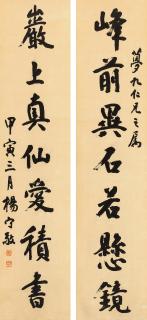 峰前異石若懸鏡
夢九仁兄之屬
巖上真仙愛積書
甲寅三月楊守敬